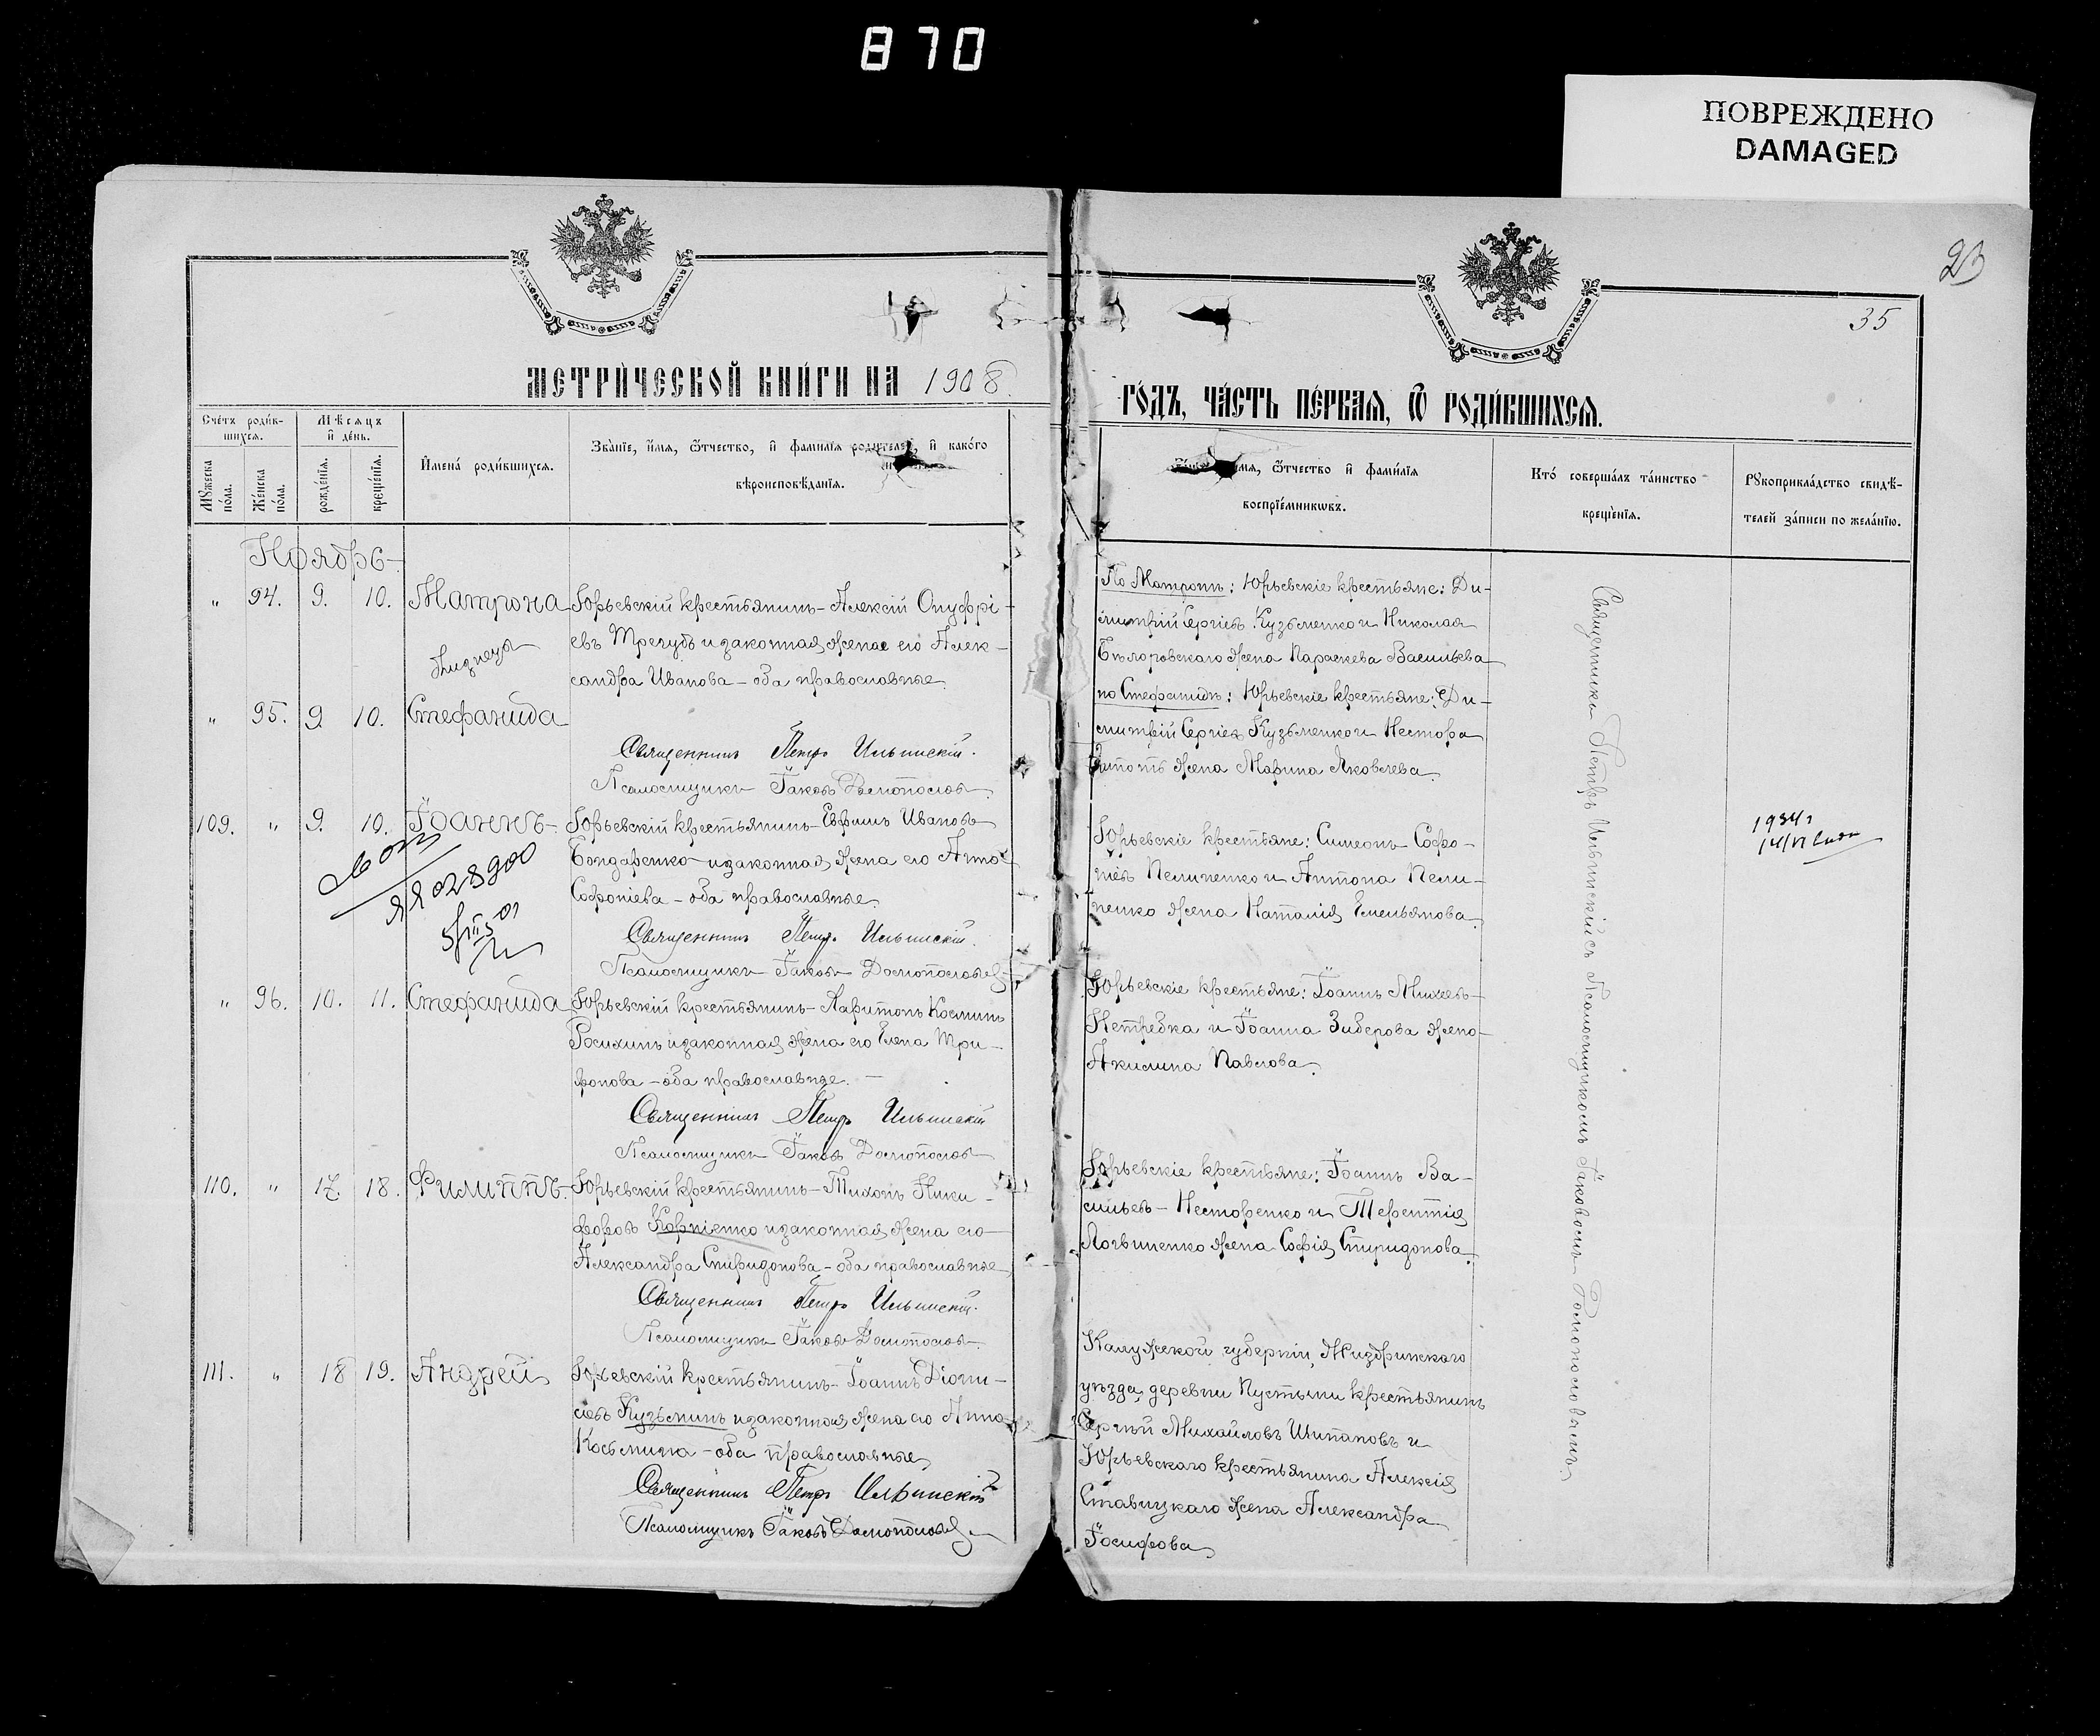 870
ПОВРЕЖДЕНО
DAMAGED
23
35
МЕТРИЧЕСКОЙ КНИГИ НА 1908
ГОДЪ, ЧАСТЬ ПЕРВАЯ, Ѡ РОДИВШИХСЯ.
Счетъ родив-
шихся.
Мужеска
пола.
Женска
пола.
Мѣсяцъ
и день.
рожденія.
крещенія.
Имена родившихся.
Званіе, имя, ѿтчество, и фамилія родителей, и какого
вѣроисповѣданія.
имя, ѿтчество и фамилія
воспріемникѡвъ.
Кто совершалъ таинство
крещенія.
Рукоприкладство свидѣ-
телей записи по желанію.
Ноябрь
„ 94. 9. 10. Матрона
близнецы
Юрьевскій крестьянинъ – Алексій Онуфрі-
евъ Трегубъ и законная жена его Алек-
сандра Иванова – оба православные.
По Матронѣ: Юрьевскіе крестьяне: Ди-
митрій Сергіевъ Кузьменко и Николая
Бѣлоровскаго жена Параскева Васильева
„ 95. 9 10. Стефанида
Священникъ Петръ Ильинскій.
Псаломщикъ Іаковъ
по Стефанидѣ: Юрьевскіе крестьяне: Ди-
митрій Сергіевъ Кузьменко и Нестора
жена Марина Яковлева.
109. „ 9. 10. Іоаннъ
ЯЯ 028900
Юрьевскій крестьянинъ – Евфимъ Ивановъ
Бондаренко и законная жена его Анна
Софроніева – оба православные.
Священникъ Петръ Ильинскій.
Псаломщикъ Іаковъ
Юрьевскіе крестьяне: Симеонъ Софро-
ніевъ Пелипенко и Антона Пели-
пенко жена Наталія Емельянова.
1934г
„ 96. 10. 11. Стефанида
Юрьевскій крестьянинъ – Харитонъ Косминъ
Росихинъ и законная жена его Елена Три-
фонова – оба православные. –
Священникъ Петръ Ильинскій
Псаломщикъ Іаковъ
Юрьевскіе крестьяне: Іоаннъ Михеевъ
Нетребка и Іоанна Зиберова жена
Акилина Павлова.
110. „ 17. 18. Филиппъ.
Юрьевскій крестьянинъ – Тихонъ Ники-
форовъ Корніенко и законная жена его
Александра Спиридонова – оба православные
Священникъ Петръ Ильинскій.
Псаломщикъ Іаковъ
Юрьевскіе крестьяне: Іоаннъ Ва-
сильевъ – Несторенко и Терентія
Логвиненко жена Софія Спиридонова.
111. „ 18 19. Андрей
Юрьевскій крестьянинъ – Іоаннъ Діони-
сіевъ Кузьминъ и законная жена его Анна
Косьмина – оба православные
Священникъ Петръ Ильинскій
Псаломщикъ Іаковъ
Калужской губерніи, Жиздринскаго
уѣзда, деревни Пустыни крестьянинъ
Сергѣй Михайловъ Шипановъ и
Юрьевскаго крестьянина Алексія
Ставицкаго жена Александра
Іосифова
Священникъ Петръ Ильинскій съ Псаломщикомъ Іаковомъ